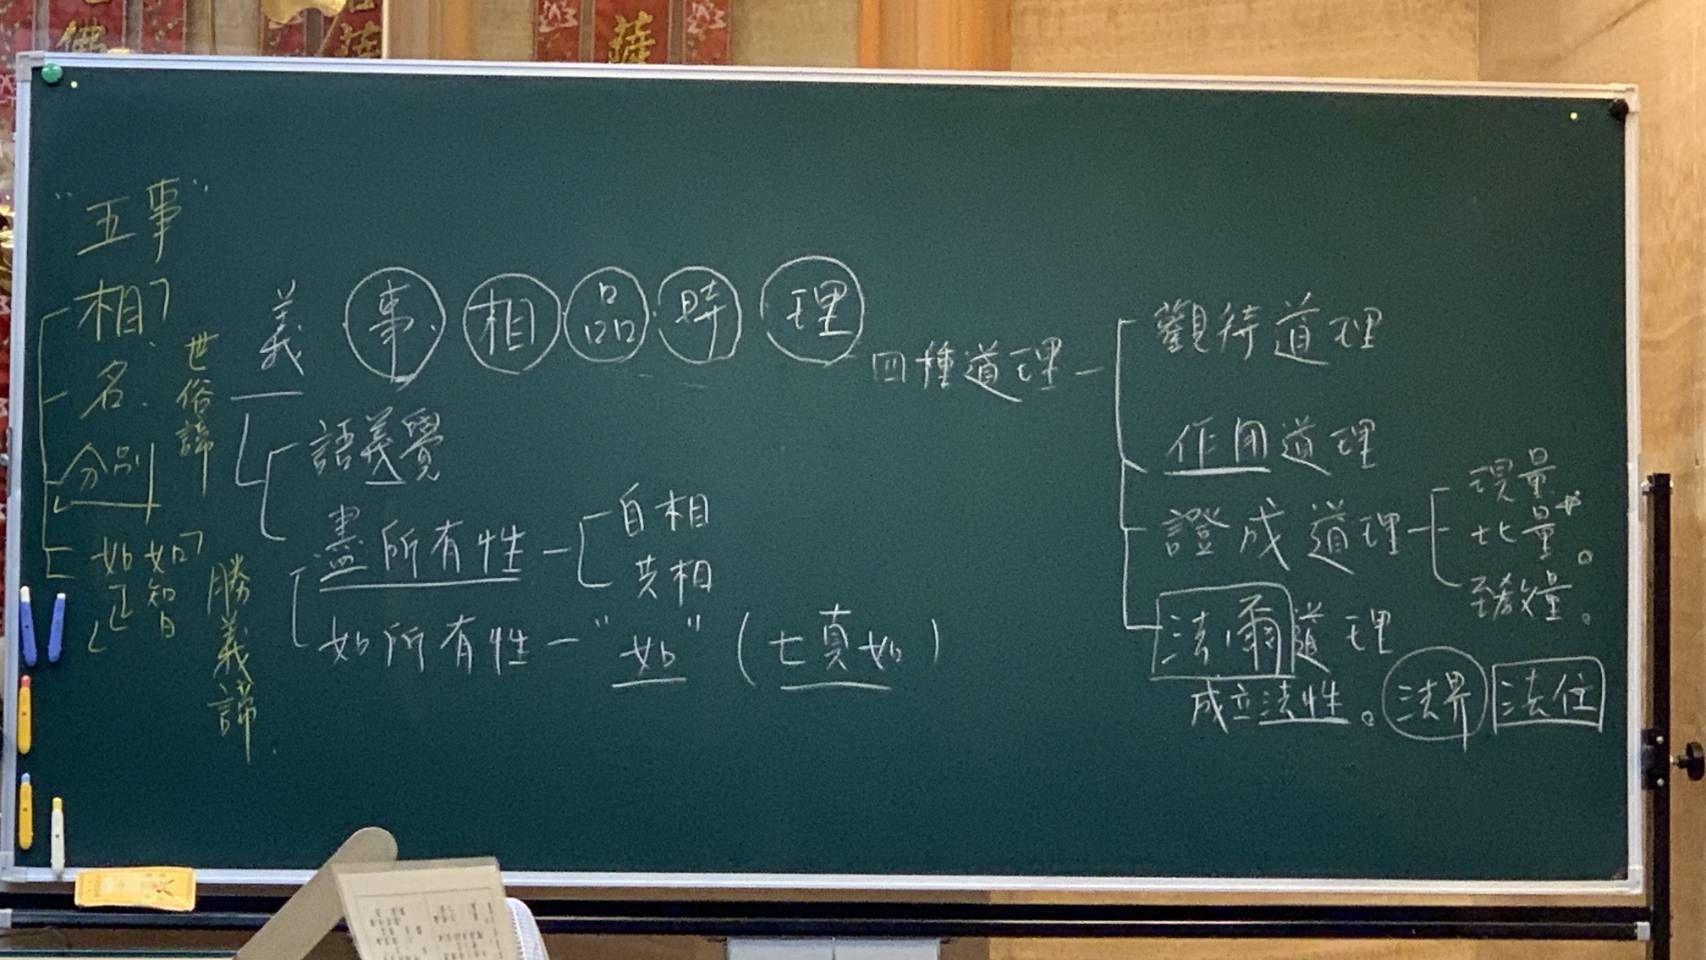 佛
薩
"五事"
相
名
分別
如如
正智
世俗諦
勝義諦
義 事 相 品 時 理
語義覺
盡所有性
自相
共相
如所有性 — "如" (七真如)
四種道理
觀待道理
作用道理
證成道理
現量
比量。
至教量。
法爾道理
成立法性。法界 法住